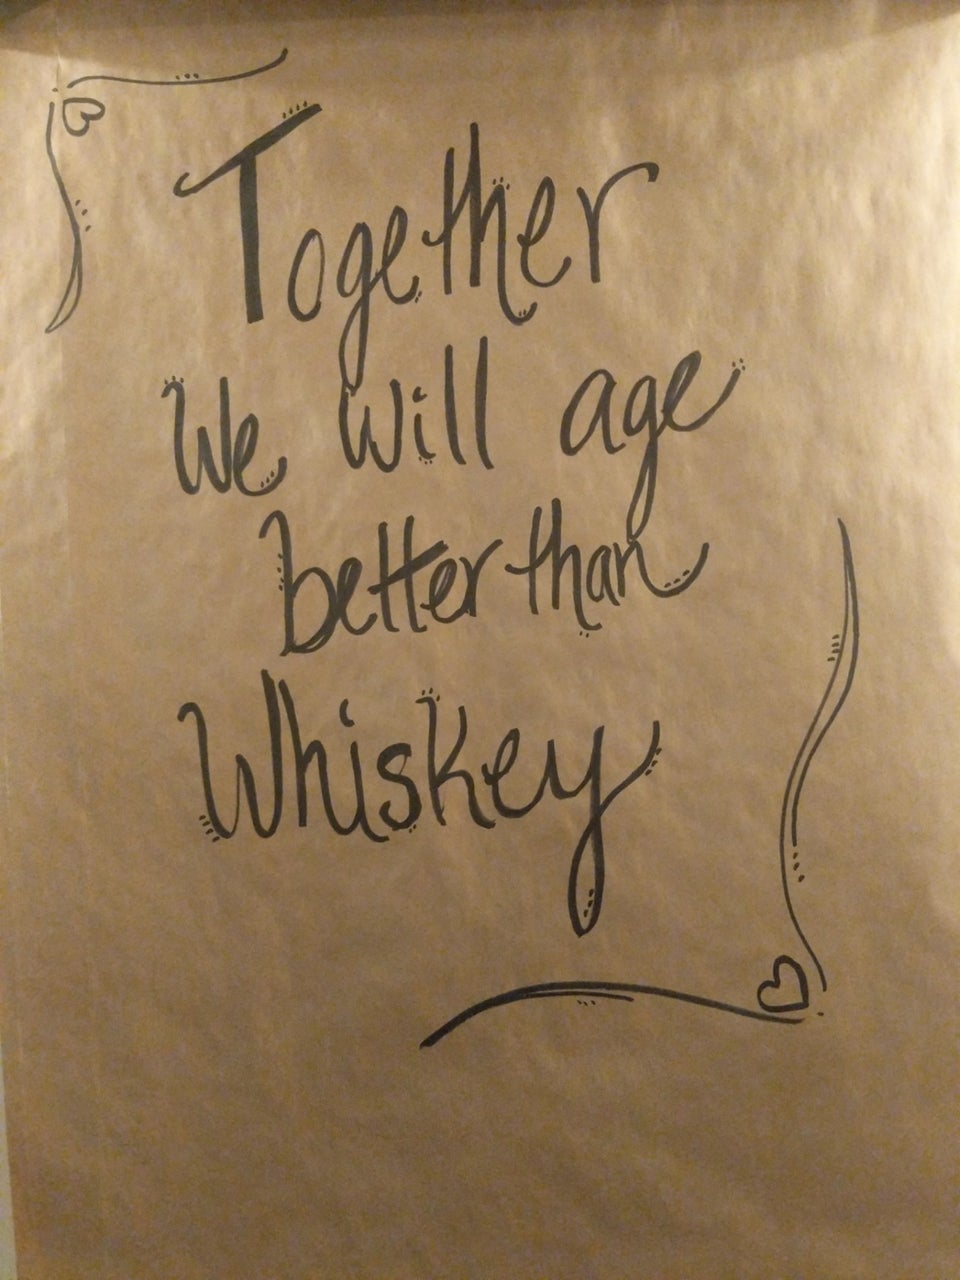 Together
We will age
better than
Whiskey